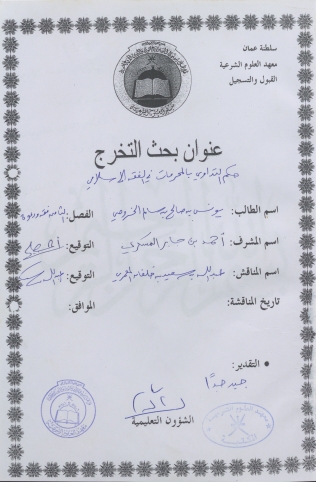 سلطنة عمان
معهد العلوم الشرعية
القبول والتسجيل
عنوان بحث التخرج
حكم التداوي بالمحرمات في الفقه الإسلامي
اسم الطالب: يونس بن صالح بن سالم الخروصي الفصل:
اسم المشرف: أحمد بن جابر المسكري التوقيع:
اسم المناقش: عبدالله بن سعيد بن خلفان المعمري التوقيع:
تاريخ المناقشة: الموافق:
التقدير:
جيد جداً
الشؤون التعليمية